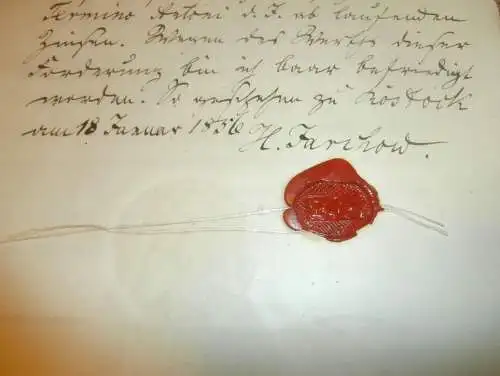 Termino Antoni d. J. ab laufenden
Zinsen. Wegen des Werths dieser
Forderung bin ich baar befriedigt
worden. So geschehen zu Rostock
am 18 Januar 1856 H. Jarchow.